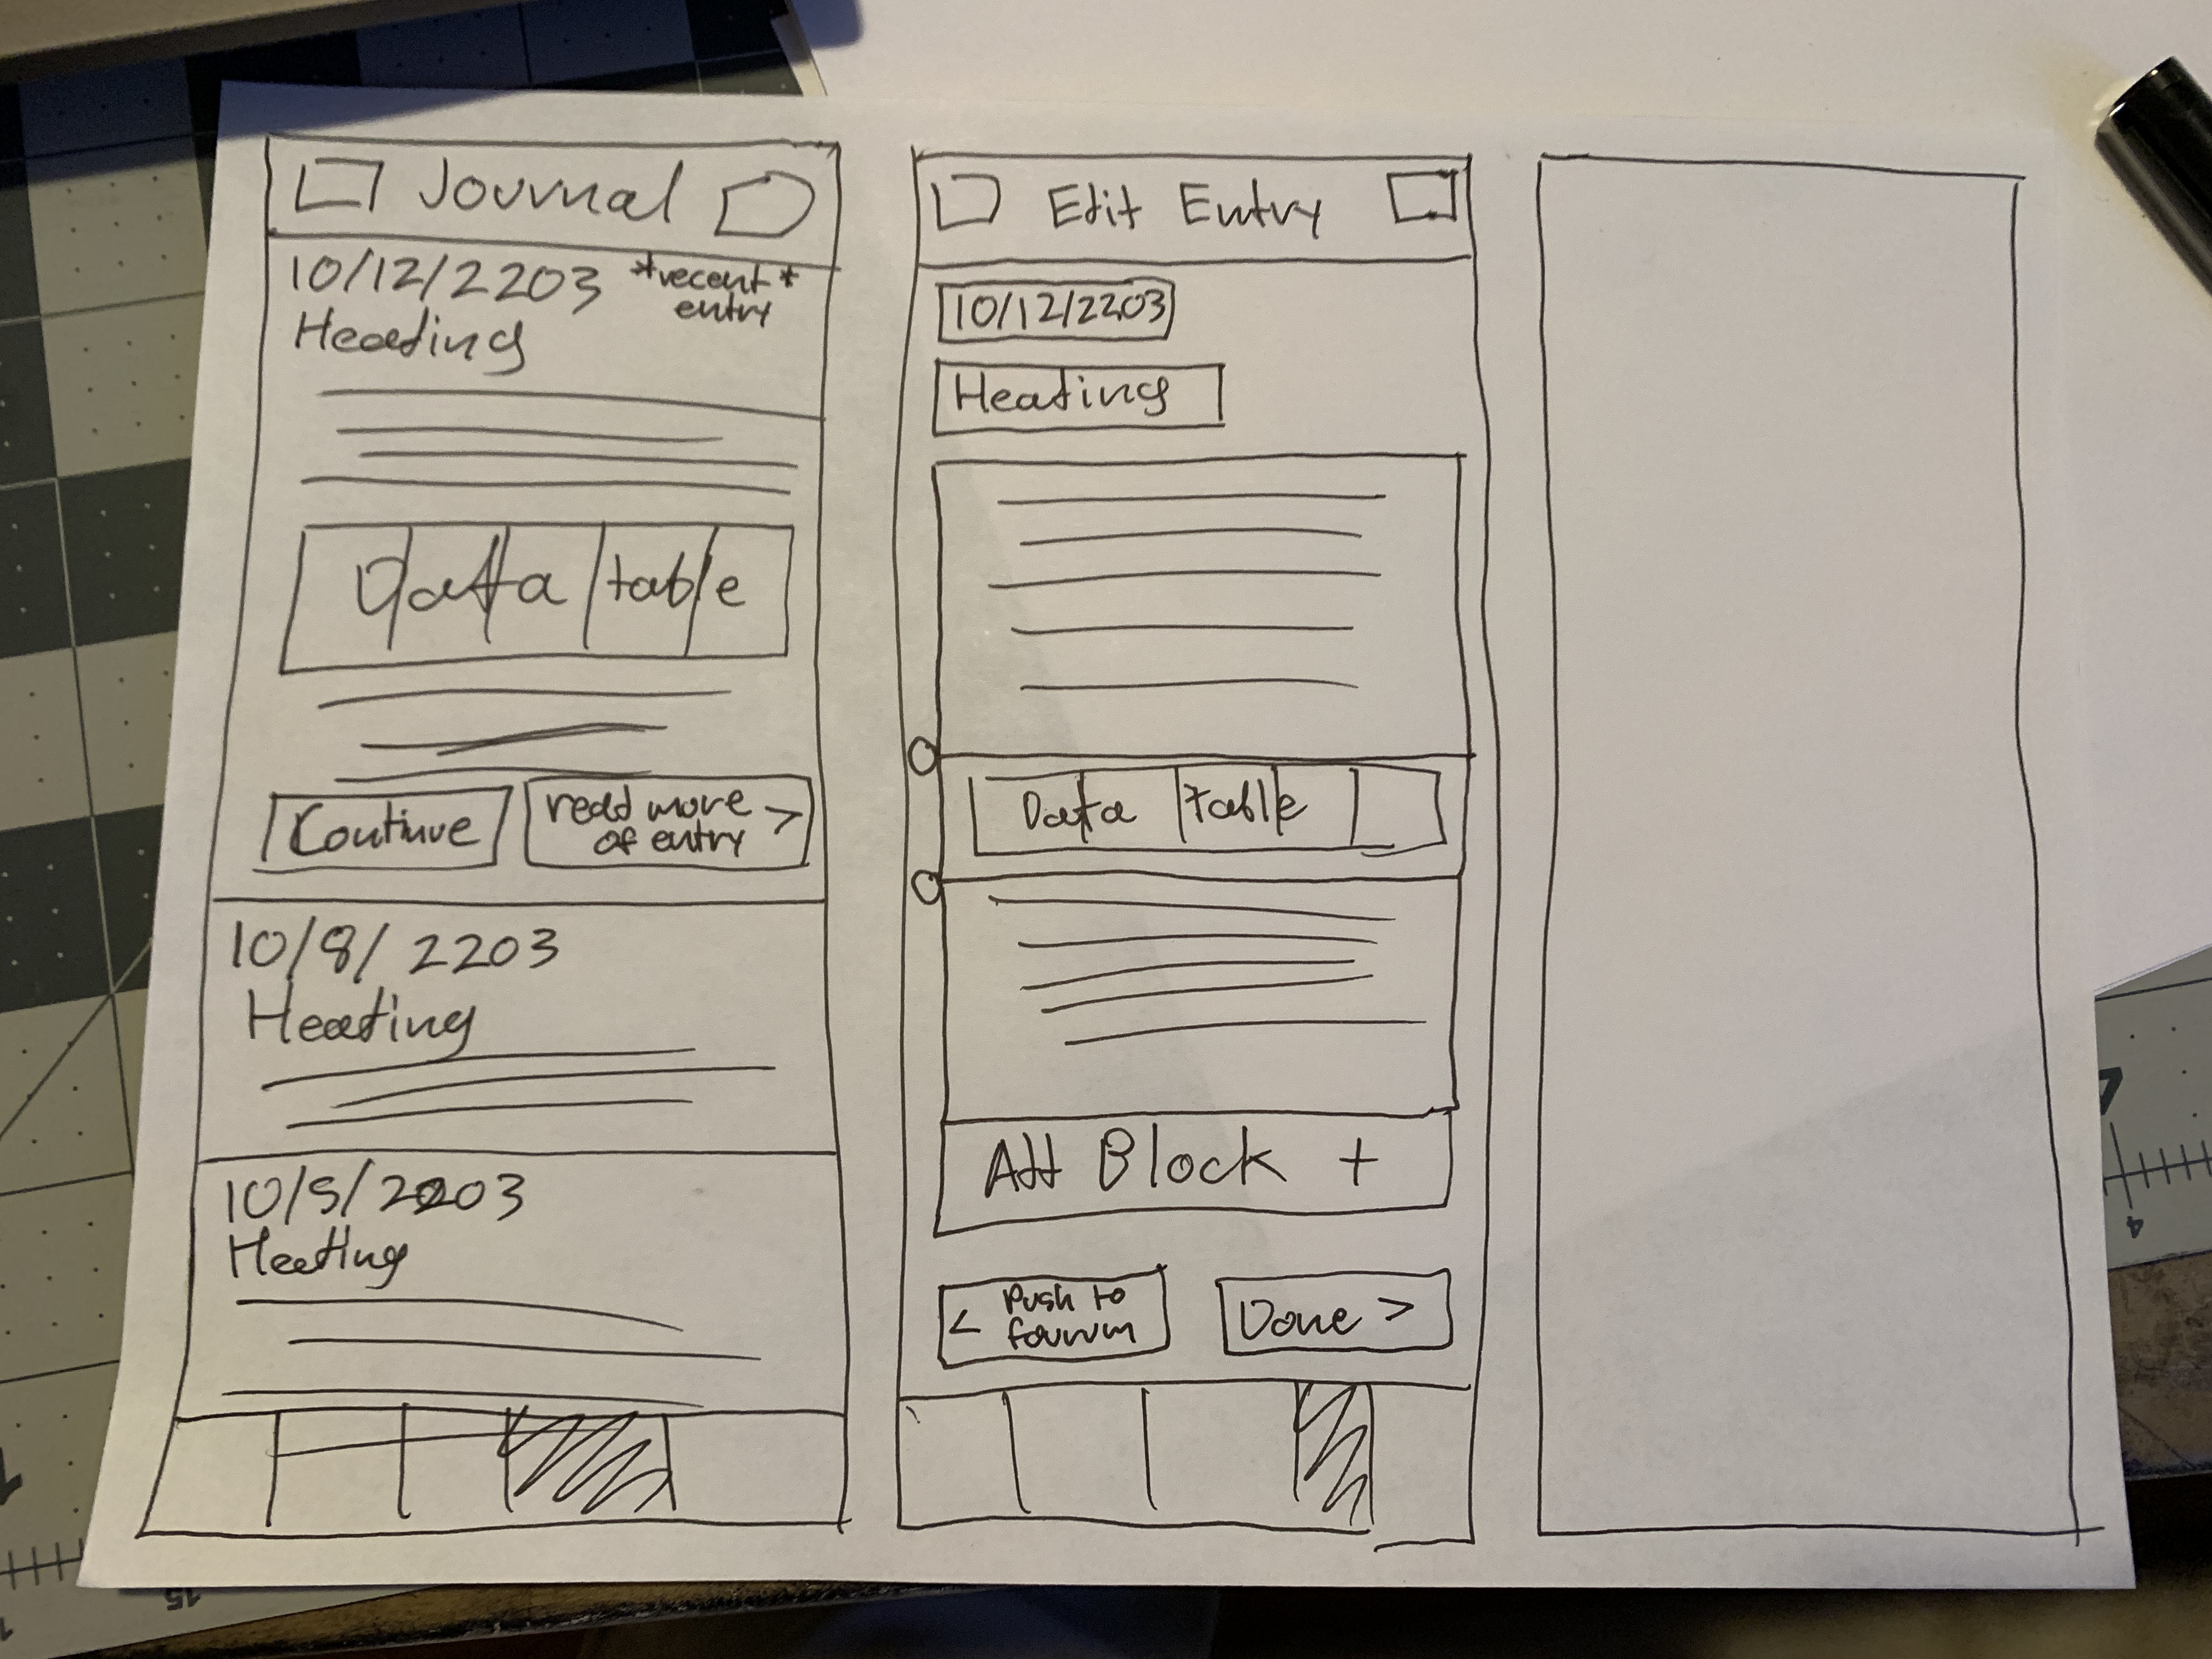 Journal
10/12/2203 *recent*
entry
Heading
Data table
Continue
read more >
of entry
10/8/2203
Heading
10/5/2203
Heading
Edit Entry
10/12/2203
Heading
Data table
Add Block +
< Push to
fourum
Done >
15
4